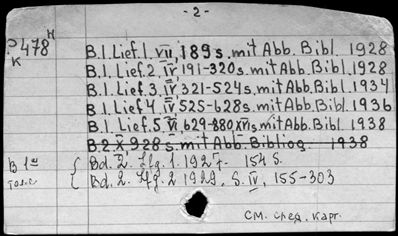 - 2 -
P 478 н
к
B.1. Lief.1. VII, 189 s. mit Abb. Bibl. 1928
B.1. Lief.2. IV, 191-320 s. mit Abb. Bibl. 1928
B.1. Lief.3. IV, 321-524 s. mit Abb. Bibl. 1934
B.1. Lief 4. IV, 525-628 s. mit Abb. Bibl. 1936
B.1. Lief.5. VI, 629-880 XVI s. mit Abb. Bibl. 1938
B.2. X, 928 s. mit Abb. Bibliog. 1938
B 1ш Bd. 2. Lfg. 1. 1927. 154 S.
Bd. 2. Lfg. 2 1929. S. IV, 155-303
см. сред. карт.